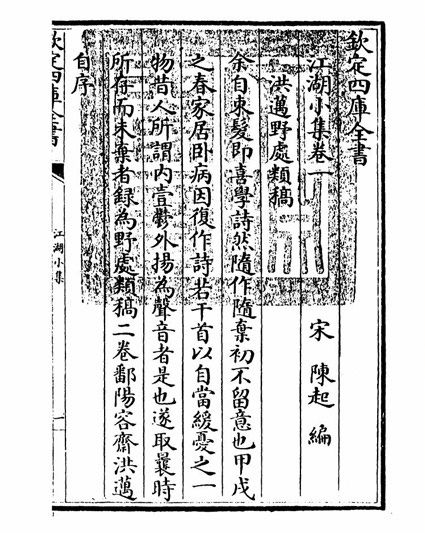 欽定四庫全書
江湖小集卷一
宋 陳起 編
洪邁野處類稿
余自束髮即喜學詩然隨作隨棄初不留意也甲戌
之春家居臥病因復作詩若干首以自當緩憂之一
物昔人所謂內壹鬱外揚為聲音者是也遂取曩時
所存而未棄者録為野處類稿二卷鄱陽容齋洪邁
自序
欽定四庫全書
江湖小集
一